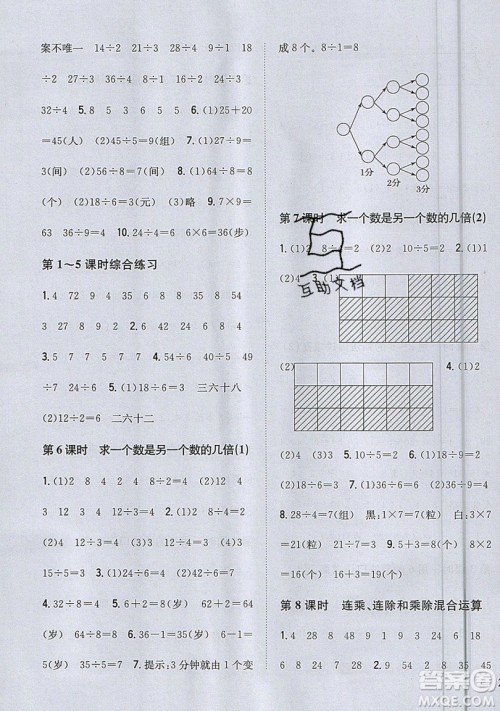 案不唯一 14÷2 21÷3 28÷4 9÷1 18
÷2 27÷3 36÷4 45÷5 16÷2 24÷3
32÷4 5. 8 5 3 6 7 4 6. (1)25+20
=45(人) (2)45÷5=9(组) 7. (1)9÷3=3
(间) (2)54÷6=9(间) 8. (1)24÷3=8
(个) (2)18÷6=3(个) (3)略 9. 24÷6
=4(个) 10. 4×9=36 6×6=36(步)
第 1～5 课时综合练习
1. 4 72 9 4 29 34 63 8 36 4
3. 5 7 15 4. 28÷4=7 24÷6=4
35÷5=7 5. (1)18÷6=3 三六十八
(2)12÷6=2 二六十二
第 6 课时 求一个数是另一个数的几倍(1)
1. (1)2 2 8÷4=2 (2)12 4 3 12÷
4 3 12 4 3 2. (1)4 8 2 8 4 2
8÷4=2 (2)24 6 4 24 6 4 24÷6
=4 3. 12÷6=2 12÷4=3 4. (1)3
15÷5=3 (2)4 12÷3=4 5. 48÷6=8
32÷8=4 6. (1)24+8=32(岁) 32÷8
=4 (2)36÷6=6(岁) 6−1=
5(岁) 35÷5=7 7. 提示：3 分钟就由 1 个变
成 8 个。 8÷1=8
1分
2分
3分
第 7 课时 求一个数是另一个数的几倍(2)
1. (1)2 8÷4=2 (2)2 10÷5=2
(2)4 3. (1)
互助文档
(2)
4. (1)2
(2)4 (3)3 5. 2 4 7 3 6. (1)2
(2)4 7. (1)45÷9=5 (2)36÷9=4
8. 28÷4=7(组) 黑：1×7=7(粒) 白：3×7
=21(粒) 21÷7=3 9. 5+3=8 8×2
=16(个) 16÷4=4
第 8 课时 连乘、连除和乘除混合运算
1. 24 48 5 15 6 54 2. 28 7 8
6 8 24 9 45 20 4 8 35 45